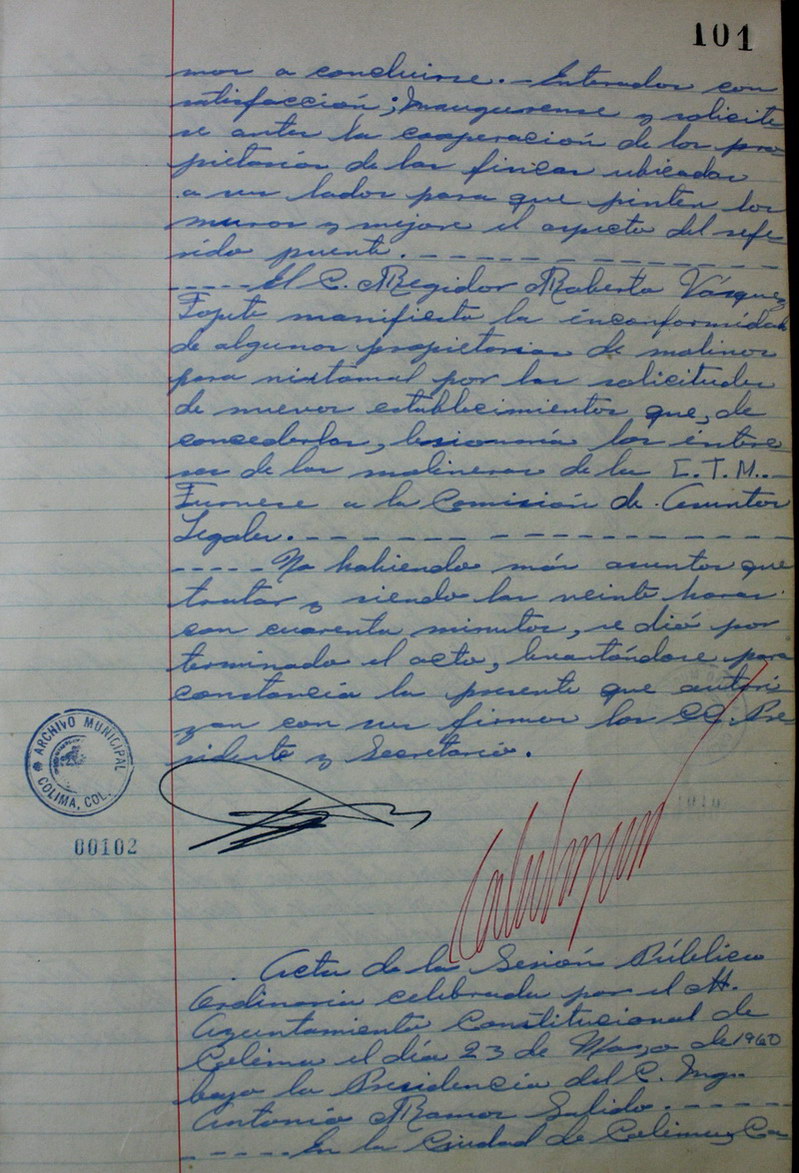 101
mos a concluirse.- Enterados con
satisfacción; Inaugurense y solicite
se antes la cooperación de los pro
pietarios de las fincas ubicadas
a sus lados para que pinten los
muros y mejore el aspecto del refe
rido puente.- - - - - - - - - - - -
- - - - El C. Regidor Roberto Vásquez
Topete manifiesta la inconformidad
de algunos propietarios de molinos
para nixtamal por las solicitudes
de nuevos establecimientos que, de
concederlos, lesionaría los intere
ses de los molineros de la C.T.M..-
Turnese a la Comisión de Asuntos
Legales.- - - - - - - - - - - - - -
- - - - - No habiendo más asuntos que
tratar y siendo las veinte horas
con cuarenta minutos, se dió por
terminado el acto, levantándose para
constancia la presente que autori
zan con sus firmas los CC. Pre
sidente y Secretario.
ARCHIVO MUNICIPAL
COLIMA, COL.
00102
Acta de la Sesión Pública
Ordinaria celebrada por el H.
Ayuntamiento Constitucional de
Colima el día 23 de Marzo de 1960
bajo la Presidencia del C. Ing.
Antonio Ramos Salido.- - - - -
- - - - - En la Ciudad de Colima, Ca